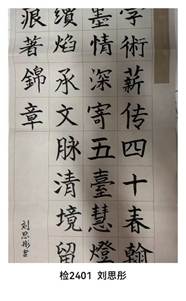 學術薪传四十春翰
墨情深寄五臺慧燈
續焰承文脉清境留
痕著錦章
刘思彤書
检2401 刘思彤